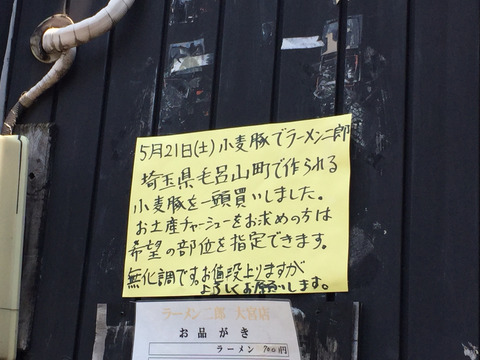 5月21日(土)小麦豚でラーメン二郎
埼玉県毛呂山町で作られる
小麦豚を一頭買いしました。
お土産チャーシューをお求めの方は
希望の部位を指定できます。
無化調です。お値段上りますが
よろしくお願いします。
ラーメン二郎 大宮店
お品がき
ラーメン 700円